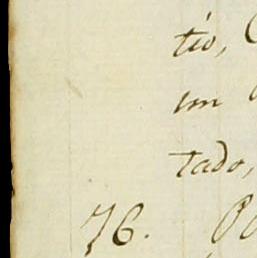 tio,
um
tado,
76.